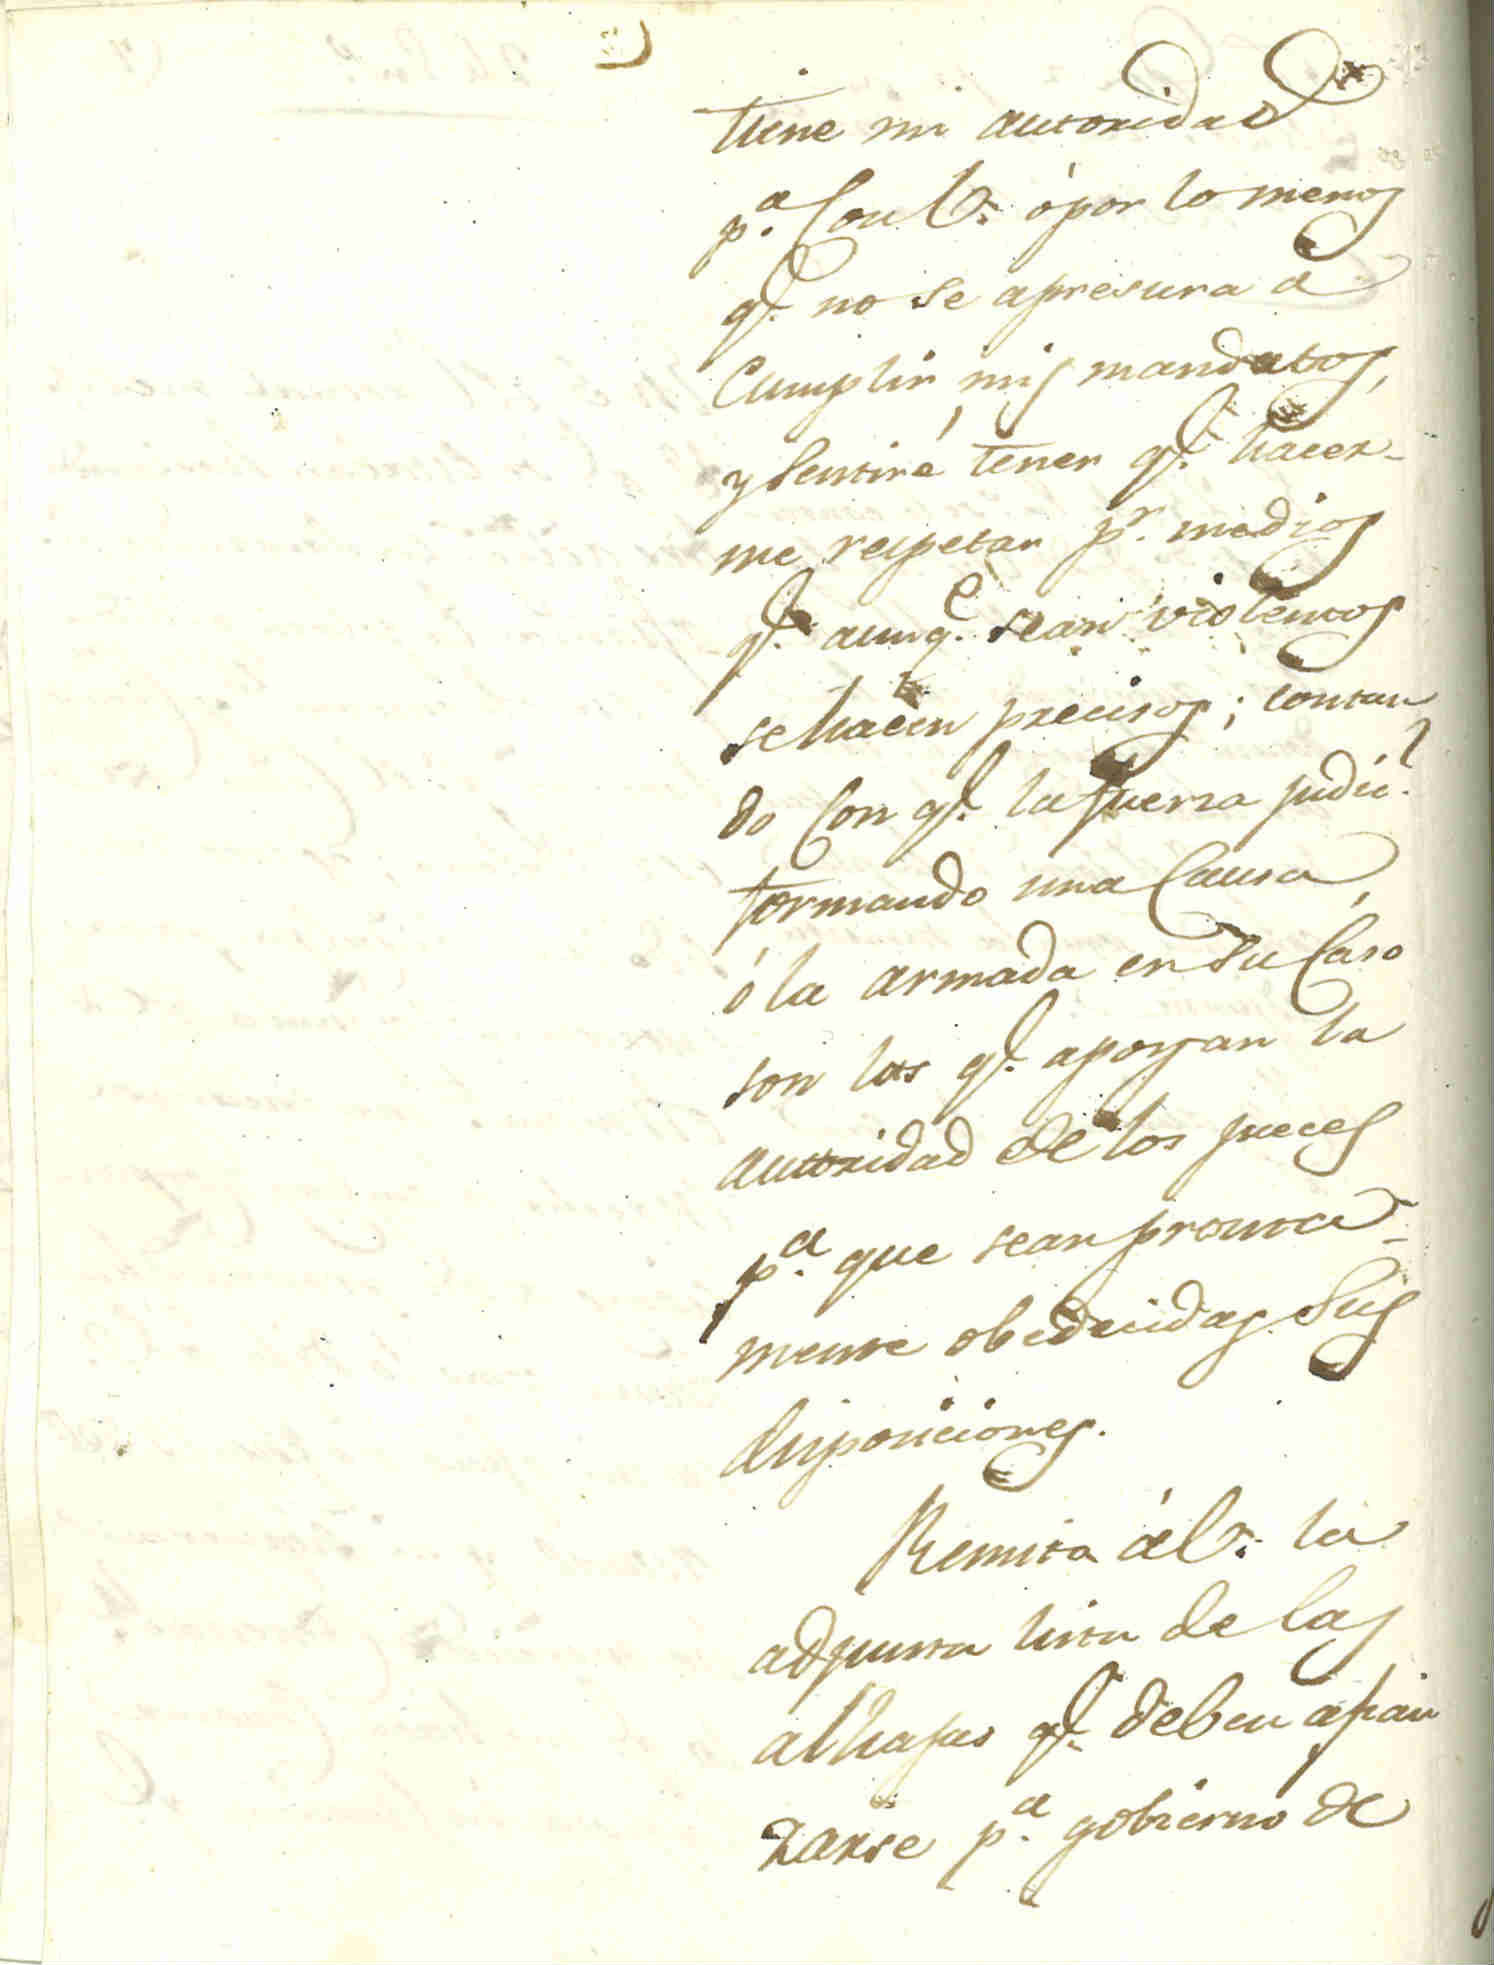 tiene mi autoridad
p.ª Con V. ó por lo menos
q.ᵉ no se apresura á
Cumplir mis mandatos,
y Sentiré tener q.ᵉ hacer-
me respetar p.ʳ medios
q.ᵉ aunq.ᵉ sean violentos
se hacen precisos; contan
do Con q.ᵉ la fuerza judic.ˡ
formando una Causa,
ó la armada en su Caso
son las q.ᵉ apoyan la
autoridad de los jueces
p.ª que sean pronta-
mente obedecidas Sus
disposiciones.
Remito á V. la
adjunta lista de las
alhajas q.ᵉ deben afian
zarse p.ª gobierno de